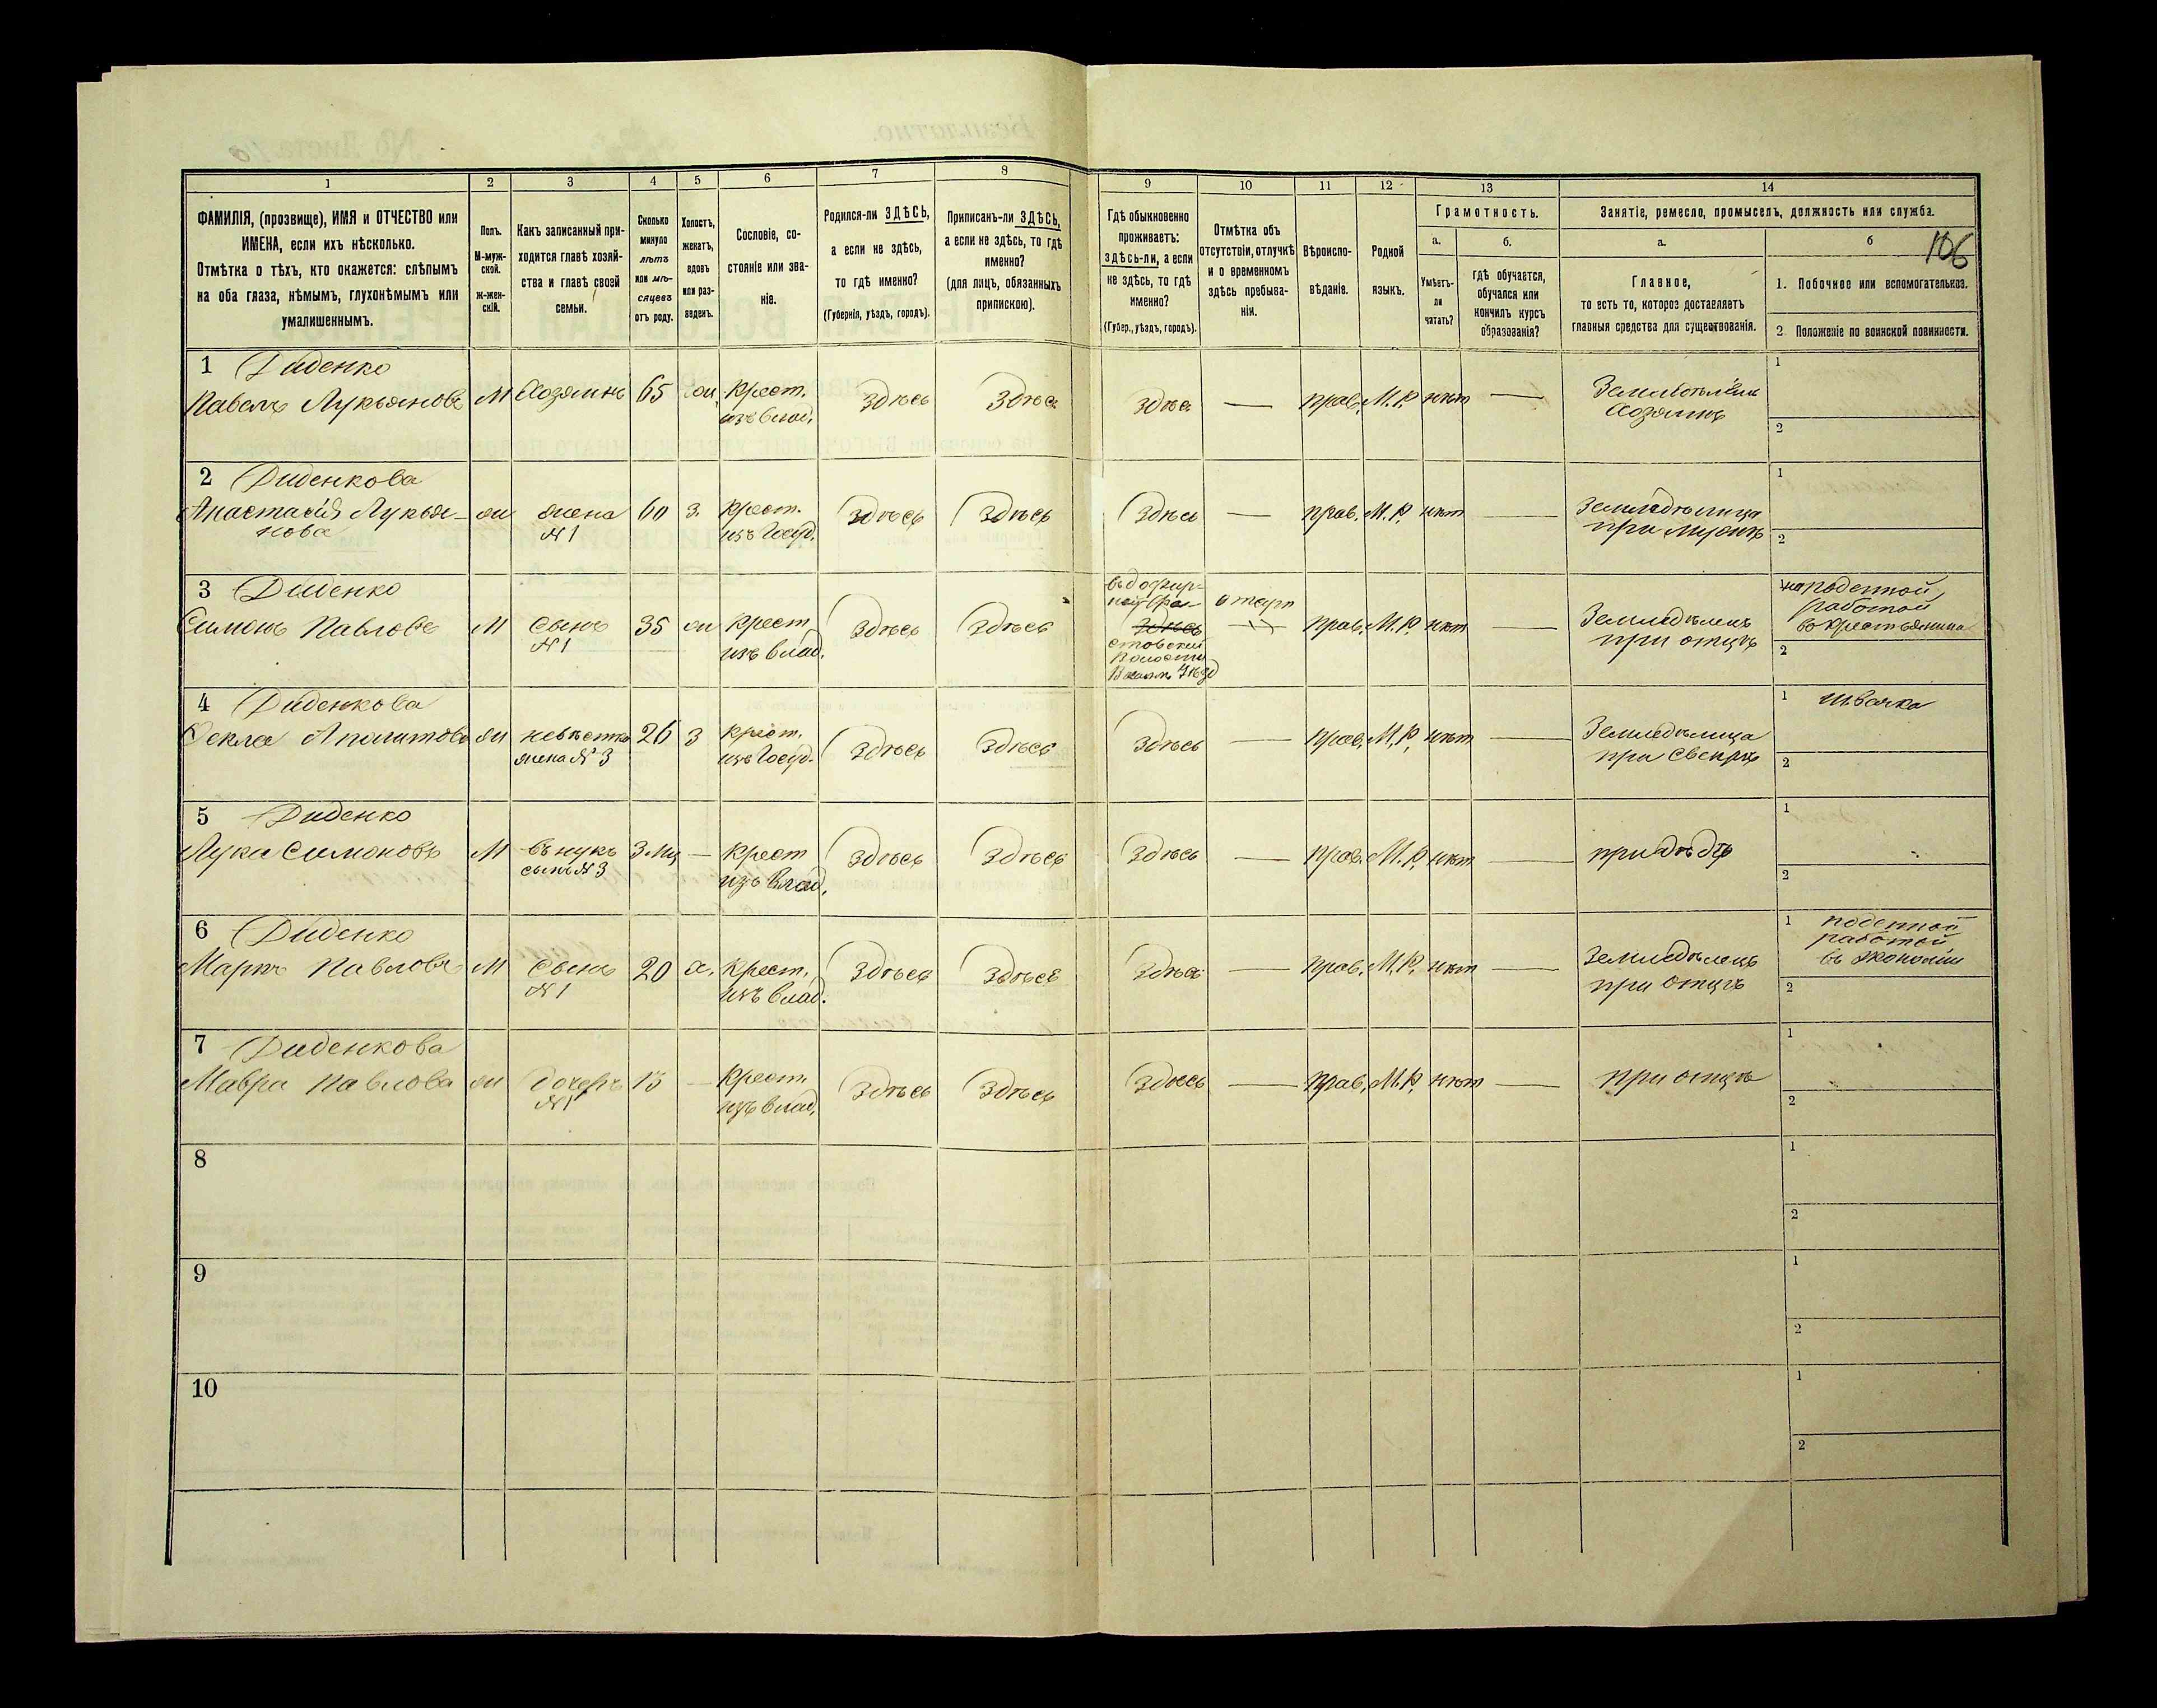 1 2 3 4 5 6 7 8 9 10 11 12 13 14
ФАМИЛІЯ, (прозвище), ИМЯ и ОТЧЕСТВО или
ИМЕНА, если ихъ нѣсколько.
Отмѣтка о тѣхъ, кто окажется: слѣпымъ
на оба глаза, нѣмымъ, глухонѣмымъ или
умалишеннымъ.
Полъ.
М-муж-
ской.
ж-жен-
скій.
Какъ записанный при-
ходится главѣ хозяй-
ства и главѣ своей
семьи.
Сколько
минуло
лѣтъ
или мѣ-
сяцевъ
отъ роду.
Холостъ,
женатъ,
вдовъ
или раз-
веденъ.
Сословіе, со-
стояніе или зва-
ніе.
Родился-ли ЗДѢСЬ,
а если не здѣсь,
то гдѣ именно?
(Губернія, уѣздъ, городъ).
Приписанъ-ли ЗДѢСЬ,
а если не здѣсь, то гдѣ
именно?
(для лицъ, обязанныхъ
припискою).
Гдѣ обыкновенно
проживаетъ:
здѣсь-ли, а если
не здѣсь, то гдѣ
именно?
(Губер., уѣздъ, городъ).
Отмѣтка объ
отсутствіи, отлучкѣ
и о временномъ
здѣсь пребыва-
ніи.
Вѣроиспо-
вѣданіе.
Родной
языкъ.
Грамотность.
а.
Умѣетъ-
ли
читать?
б.
гдѣ обучается,
обучался или
кончилъ курсъ
образованія?
Занятіе, ремесло, промыселъ, должность или служба.
а.
Главное,
то есть то, которое доставляетъ
главныя средства для существованія.
б
106
1. Побочное или вспомогательное.
2. Положеніе по воинской повинности.
1 Диденко
Павелъ Лукьяновъ М Хозяинъ 65 Крест. Здѣсь Здѣсь Здѣсь — прав. М. Р. нѣтъ —
изъ влад.
Хозяинъ
1
2
2 Диденкова
Анастасія Лукья- жена 60 З. крест. Здѣсь Здѣсь Здѣсь — прав. М. Р. нѣтъ — Земледѣлица
нова №1 изъ Госуд. при мужѣ
1
2
3 Диденко
Симонъ Павловъ М Сынъ 35 ж крест. Здѣсь Здѣсь
№1 изъ влад.
Здѣсь
стовской
Волости
прав. М. Р. нѣт — Земледѣлецъ
при отцѣ
1 поденной
работой
2
4 Диденкова
Фекла ж невѣстка 26 З крест. Здѣсь Здѣсь Здѣсь — прав. М. Р. нѣт — Земледѣлица
жена №3 изъ Госуд. при свекрѣ
1 швачка
2
5 Диденко
Лука Симоновъ М внукъ 3 мц — Крест Здѣсь Здѣсь Здѣсь — прав. М. Р. нѣт — при дѣдѣ
сынъ №3 изъ влад.
1
2
6 Диденко
Маркъ Павловъ М Сынъ 20 х. Крест. Здѣсь Здѣсь Здѣсь — прав. М. Р. нѣт — Земледѣлецъ
№1 изъ влад. при отцѣ
1 поденной
работой
въ экономіи
2
7 Диденкова
Мавра Павлова ж дочерь 13 — Крест. Здѣсь Здѣсь Здѣсь — прав. М. Р. нѣт — при отцѣ
№1 изъ влад.
1
2
8
1
2
9
1
2
10
1
2